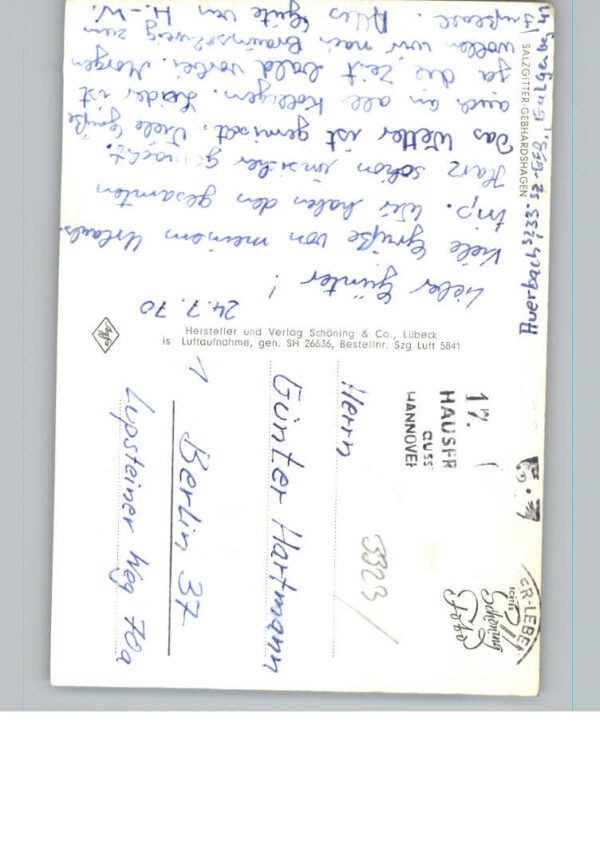 24.7.70
Lieber Günter!
Viele Grüße von meinem Urlaubs-
trip. Wir haben den gesamten
Harz schon unsicher gemacht.
Das Wetter ist gemischt. Viele Grüße
auch an alle Kollegen. Leider ist
ja die Zeit bald vorbei. Morgen
wollen wir nach Braunschweig zum
Fußball. Alles Gute von H.-W.
SALZGITTER-GEBHARDSHAGEN
Hersteller und Verlag Schöning & Co., Lübeck
is Luftaufnahme, gen. SH 26636, Bestellnr. Szg Luft 5841
Agfa
17.
HAUSER
HANNOVER
Herrn
Günter Hartmann
1 Berlin 37
Lupsteiner Weg 70a
3323/
ER-LEBE
ECHTES
Schöning
Foto